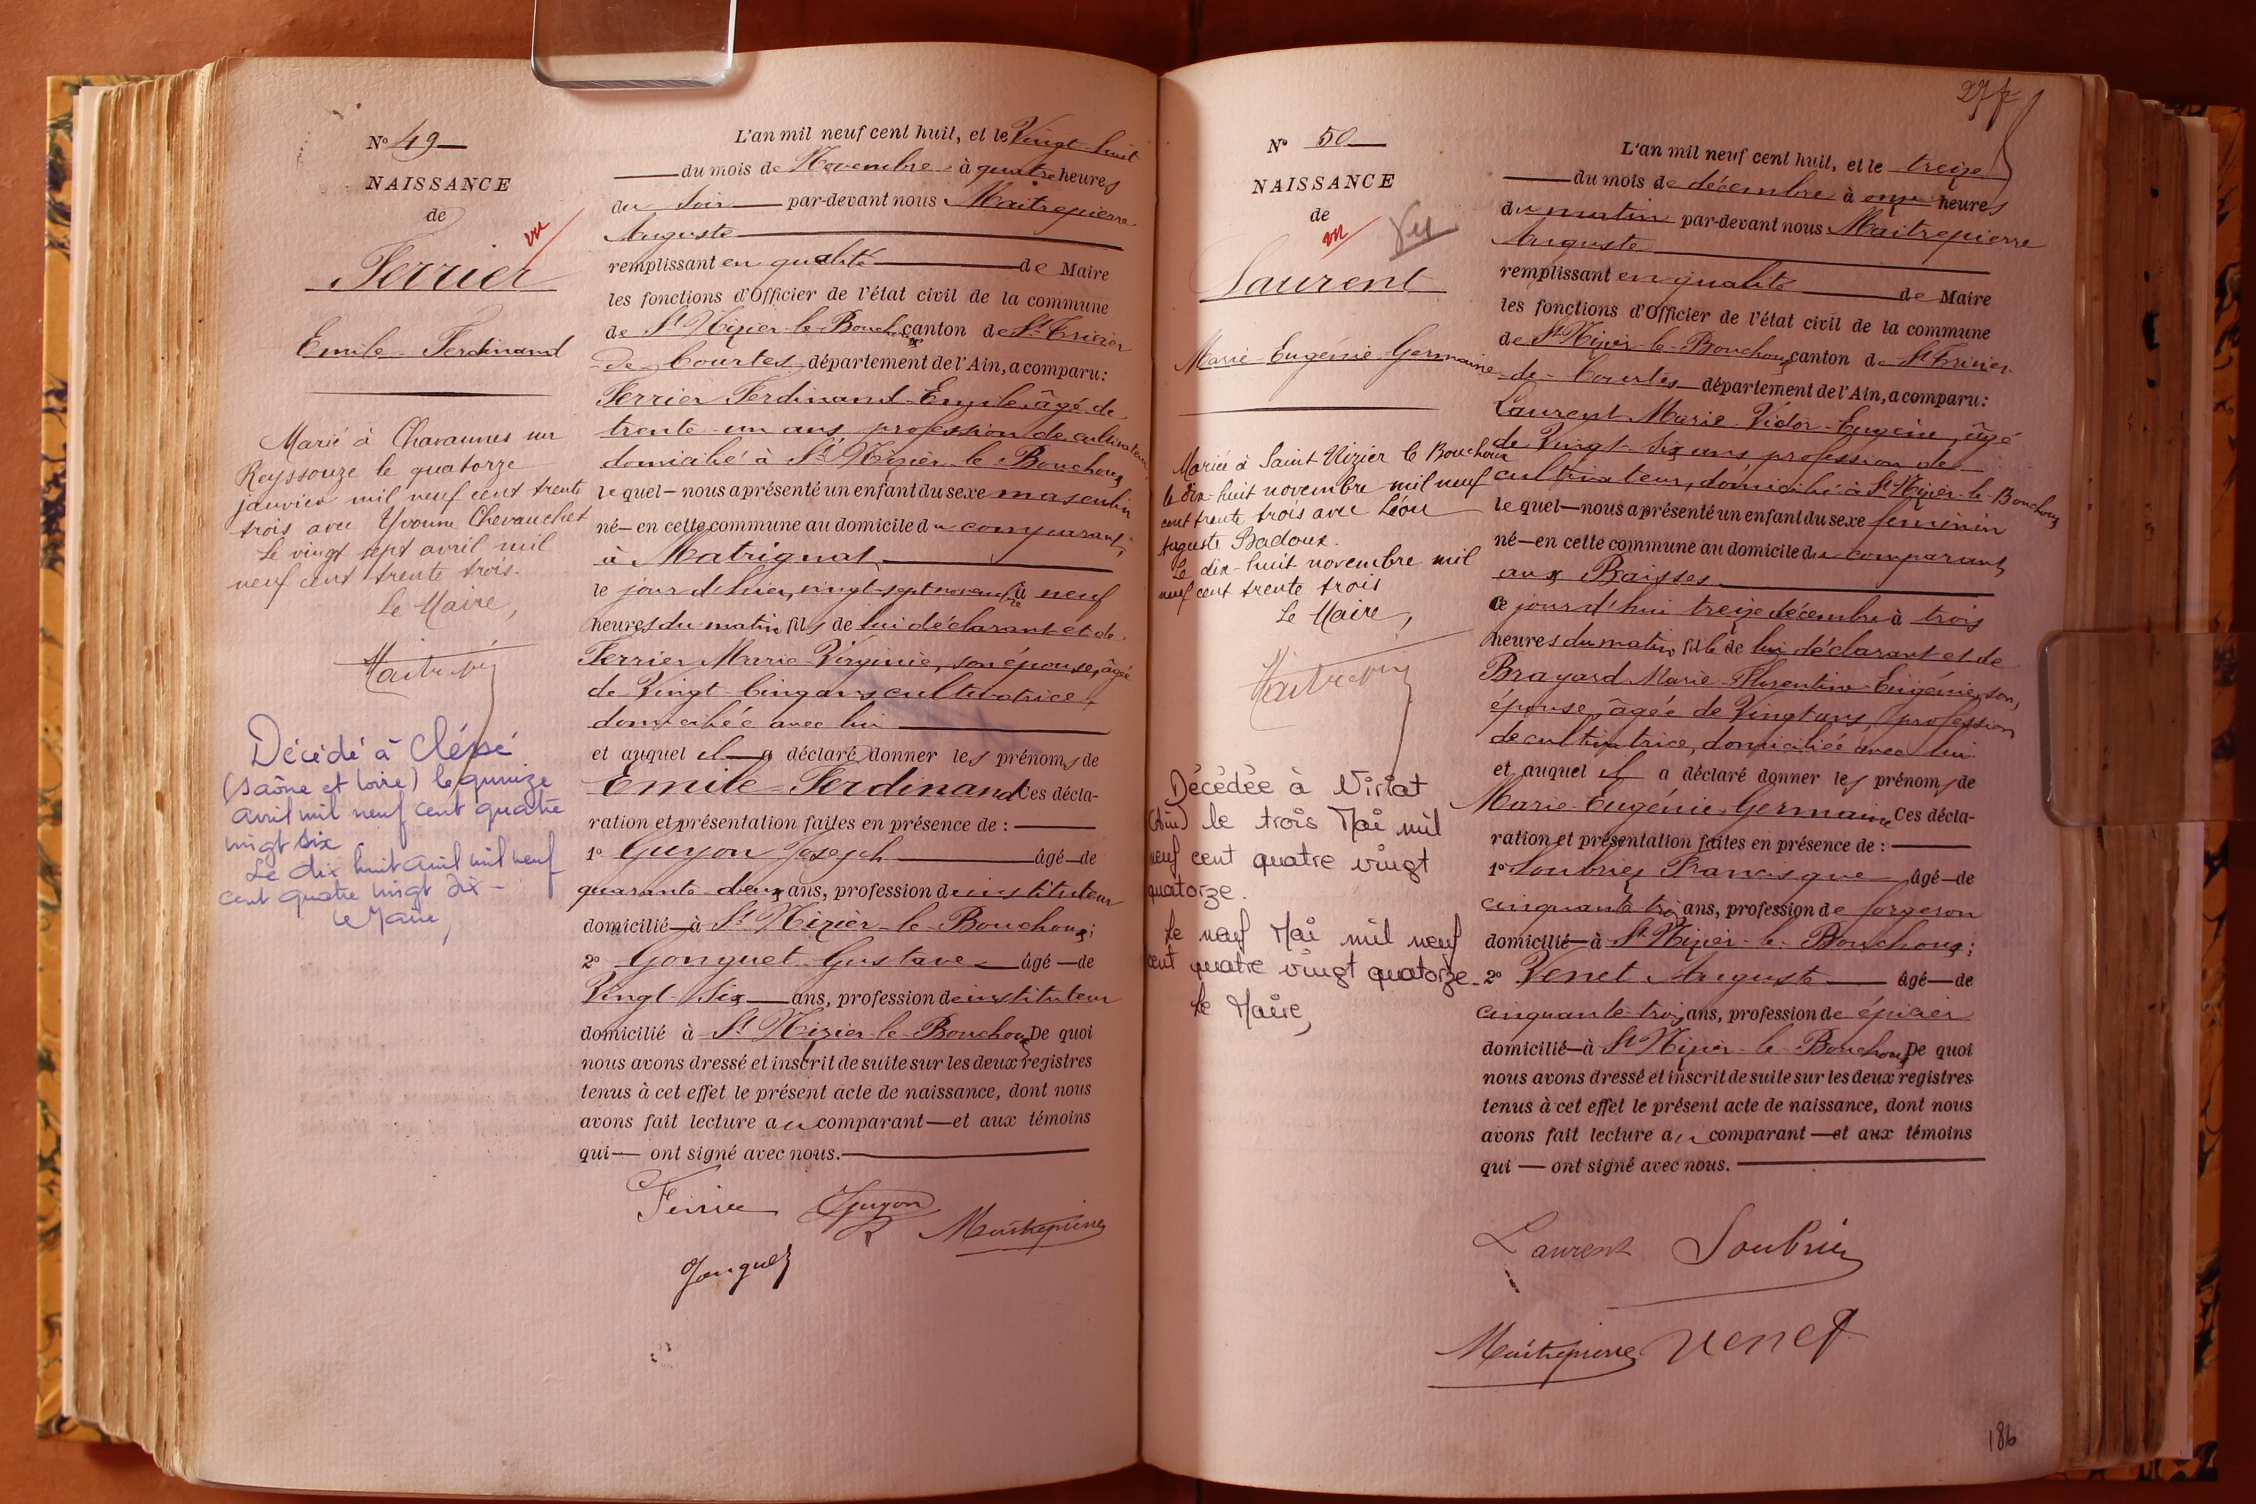 N° 49
NAISSANCE
de
vu
Ferrier
Emile Ferdinand
Marié à Chavannes sur
Reyssouze le quatorze
janvier mil neuf cent trente
trois avec Yvonne Chevauchet
Le vingt sept avril mil
neuf cent trente trois.
Le Maire,
Décédé à Cléssé
(Saône et Loire) le quinze
avril mil neuf cent quatre
vingt six
Le dix huit avril mil neuf
cent quatre vingt six
Le Maire,
L'an mil neuf cent huit, et le Vingt huit
du mois de Novembre à quatre heures
du Soir par-devant nous Maitrepierre
Auguste
remplissant en qualité de Maire
les fonctions d'Officier de l'état civil de la commune
de St Nizier-le-Bouchoux canton de St Trivier
de Courtes département de l'Ain, a comparu:
Ferrier Ferdinand Emile, âgé de
trente-un ans profession de cultivateur
domicilié à St Nizier-le-Bouchoux
lequel nous a présenté un enfant du sexe masculin
né en cette commune au domicile du comparant,
à Matrignat
le jour d'hier, vingt-sept novembre à neuf
heures du matin, fils de lui déclarant et de
Ferrier Marie Virginie, son épouse, âgée
de Vingt Cinq ans cultivatrice,
domiciliée avec lui
et auquel il a déclaré donner les prénoms de
Emile Ferdinand Ces décla-
ration et présentation faites en présence de :
1° Guyon Joseph âgé de
quarante-deux ans, profession de instituteur
domicilié à St Nizier-le-Bouchoux;
2° Gonguet Gustave âgé de
Vingt Six ans, profession de instituteur
domicilié à St Nizier-le-Bouchoux De quoi
nous avons dressé et inscrit de suite sur les deux registres
tenus à cet effet le présent acte de naissance, dont nous
avons fait lecture au comparant et aux témoins
qui ont signé avec nous.
Ferrier Guyon Maitrepierre
Gonguet
N° 50
NAISSANCE
de
vu Vu
Laurent
Marie-Eugénie-Germaine
Mariée à Saint Nizier le Bouchoux
le dix-huit novembre mil neuf
cent trente trois avec Léon
Auguste Badoux.
Le dix-huit novembre mil
neuf cent trente trois
Le Maire,
Décédée à Viriat
(Ain) le trois Mai mil
neuf cent quatre vingt
quatorze.
Le neuf Mai mil neuf
cent quatre vingt quatorze
Le Maire,
L'an mil neuf cent huit, et le treize
du mois de décembre à onze heures
du matin par-devant nous Maitrepierre
Auguste
remplissant en qualité de Maire
les fonctions d'Officier de l'état civil de la commune
de St Nizier-le-Bouchoux canton de St Trivier
de Courtes département de l'Ain, a comparu:
Laurent Marie Victor-Eugène, âgé
de Vingt Six ans profession de
cultivateur, domicilié à St Nizier-le-Bouchoux
lequel nous a présenté un enfant du sexe feminin
né en cette commune au domicile du comparant,
aux Baisses
ce jourd'hui treize décembre à trois
heures du matin, fille de lui déclarant et de
Brayard Marie-Florentine-Eugénie, son,
épouse, âgée de Vingt ans, profession
de cultivatrice, domiciliée avec lui
et auquel il a déclaré donner les prénoms de
Marie-Eugénie-Germaine Ces décla-
ration et présentation faites en présence de :
1° Soubrier Francisque âgé de
cinquante trois ans, profession de forgeron
domicilié à St Nizier-le-Bouchoux;
2° Venet Auguste âgé de
cinquante-trois ans, profession de épicier
domicilié à St Nizier-le-Bouchoux De quoi
nous avons dressé et inscrit de suite sur les deux registres
tenus à cet effet le présent acte de naissance, dont nous
avons fait lecture au comparant et aux témoins
qui ont signé avec nous.
Laurent Soubrier
Maitrepierre Venet
186